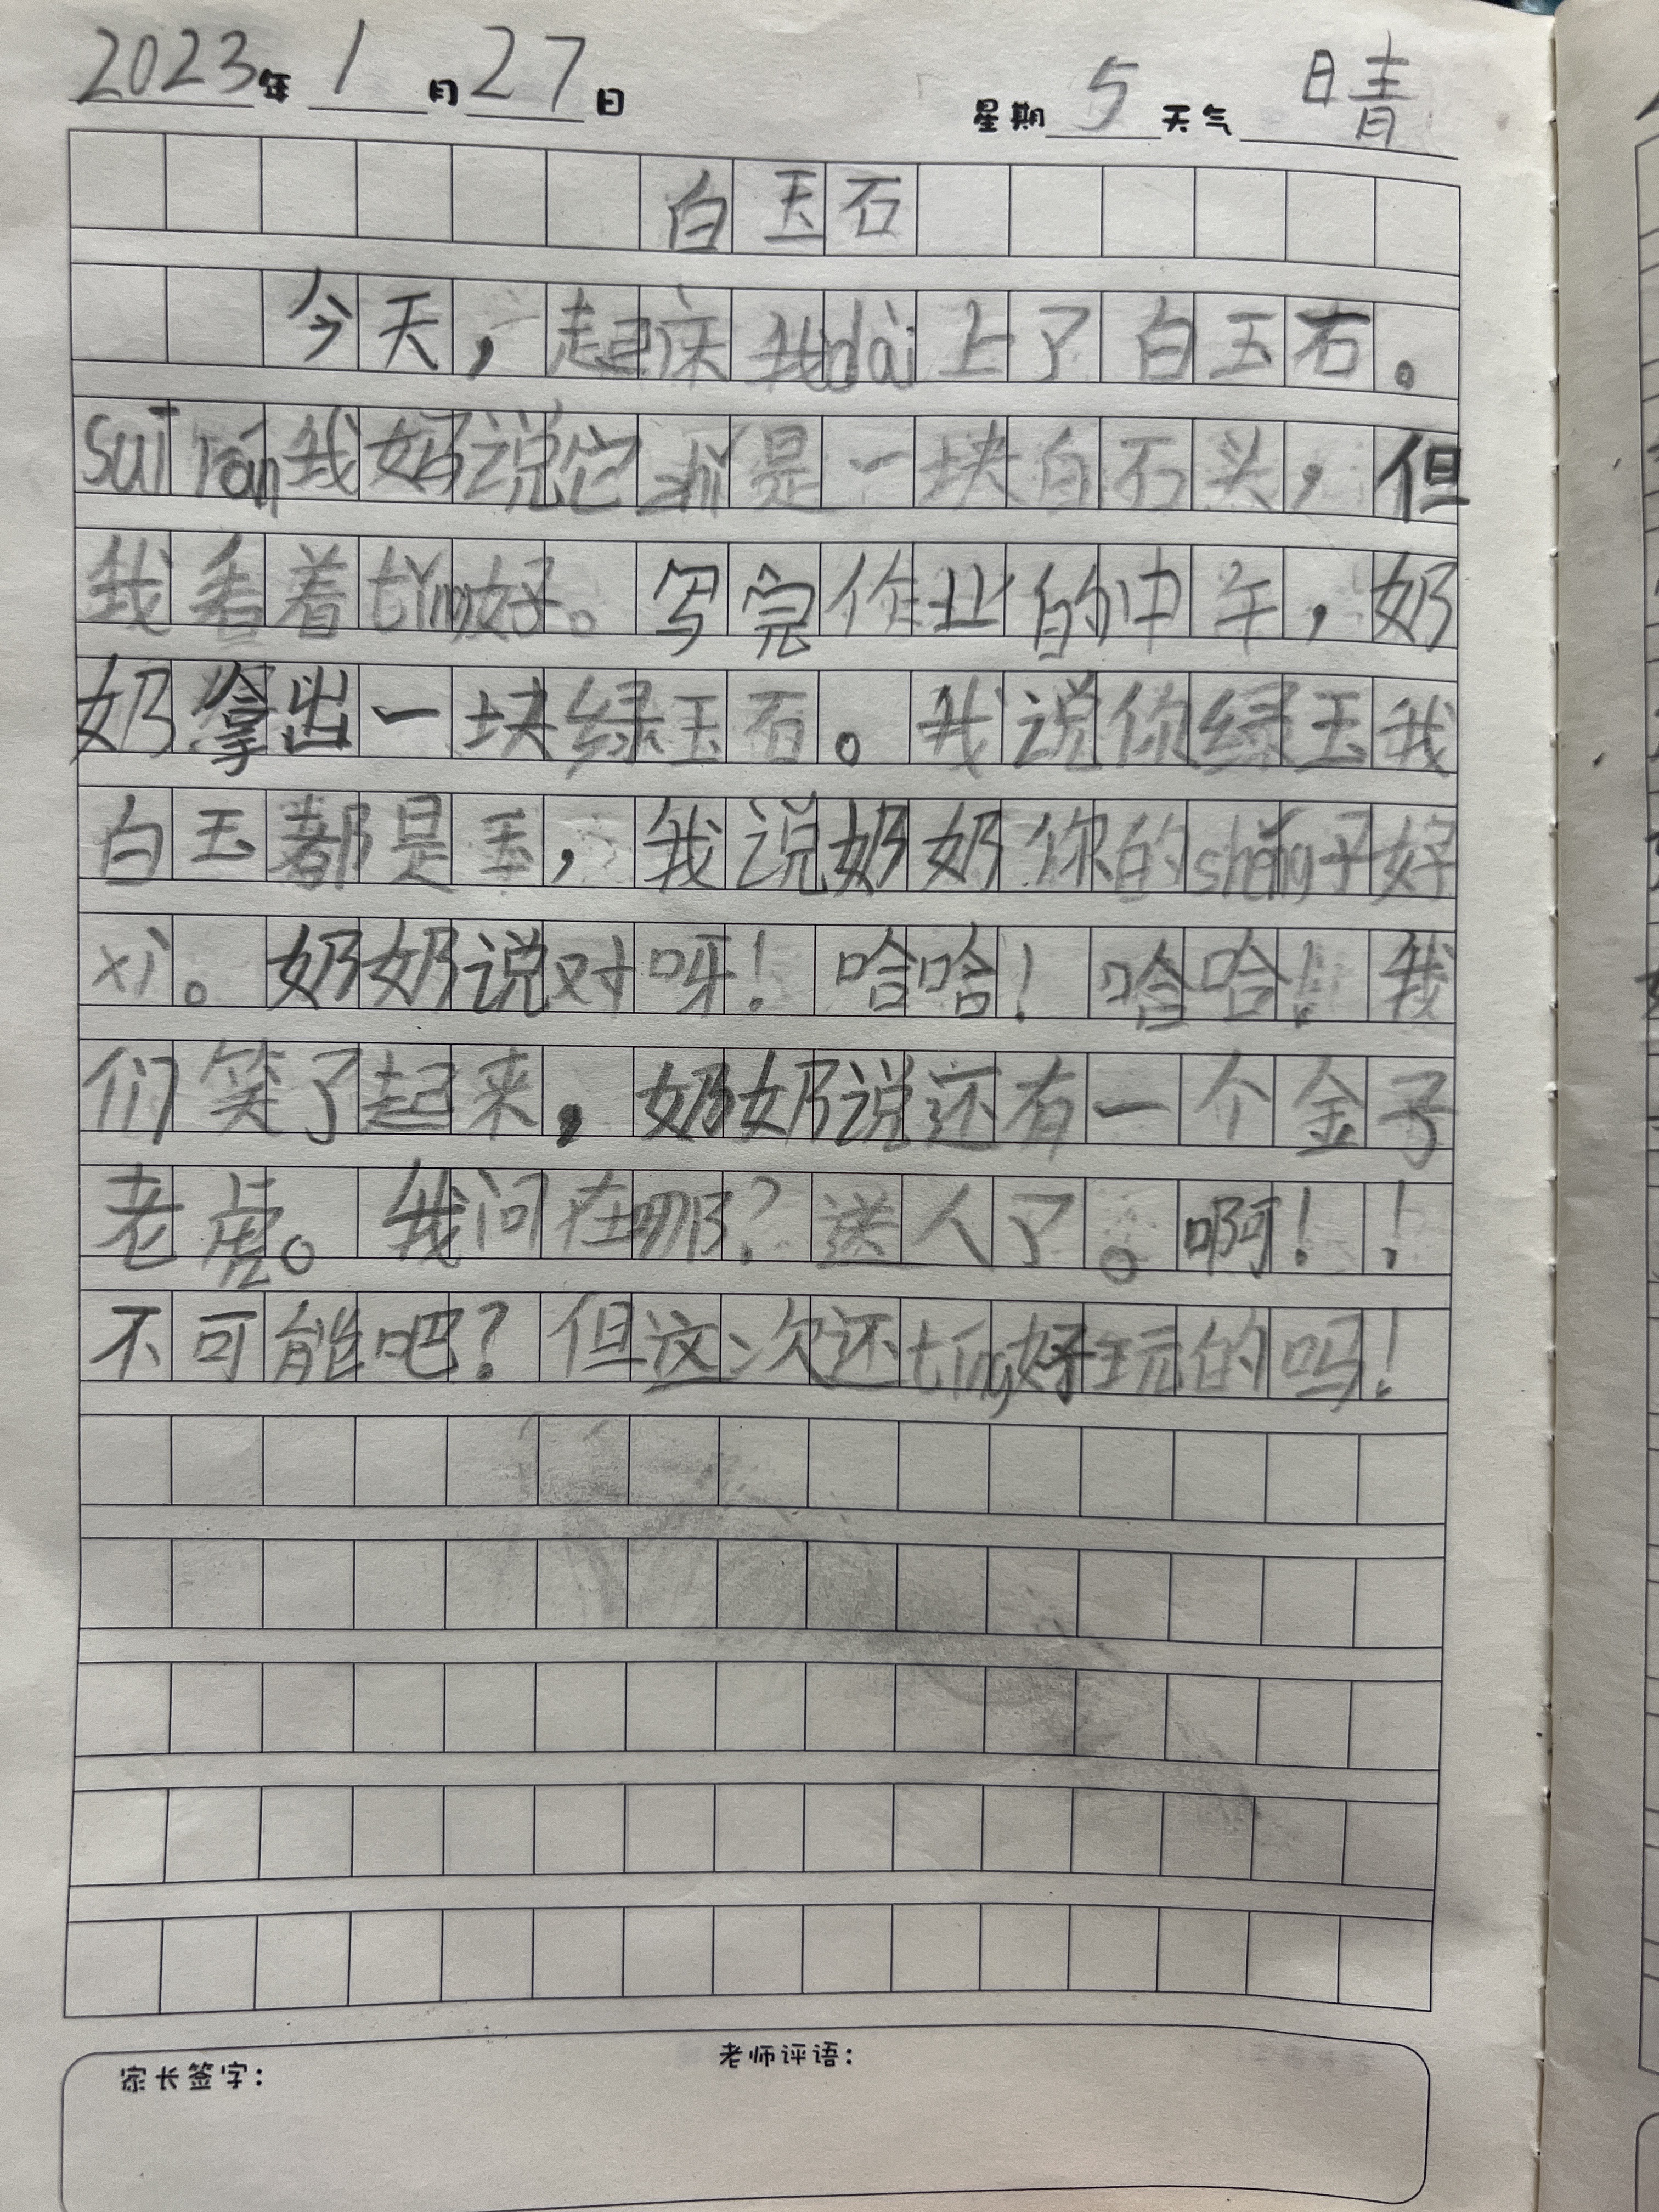 2023年1月27日 星期5天气晴
白玉石
今天，起床我dài上了白玉石。
suī rán我奶说它就是一块白石头，但
我看着tǐng好。写完作业的中午，奶
奶拿出一块绿玉石。我说你绿玉我
白玉都是玉，我说奶奶你的shēng子好
xì。奶奶说对呀！哈哈！哈哈！我
们笑了起来，奶奶说还有一个金子
老虎。我问在哪？送人了。啊！！
不可能吧？但这次还tǐng好玩的吗！
家长签字： 老师评语：